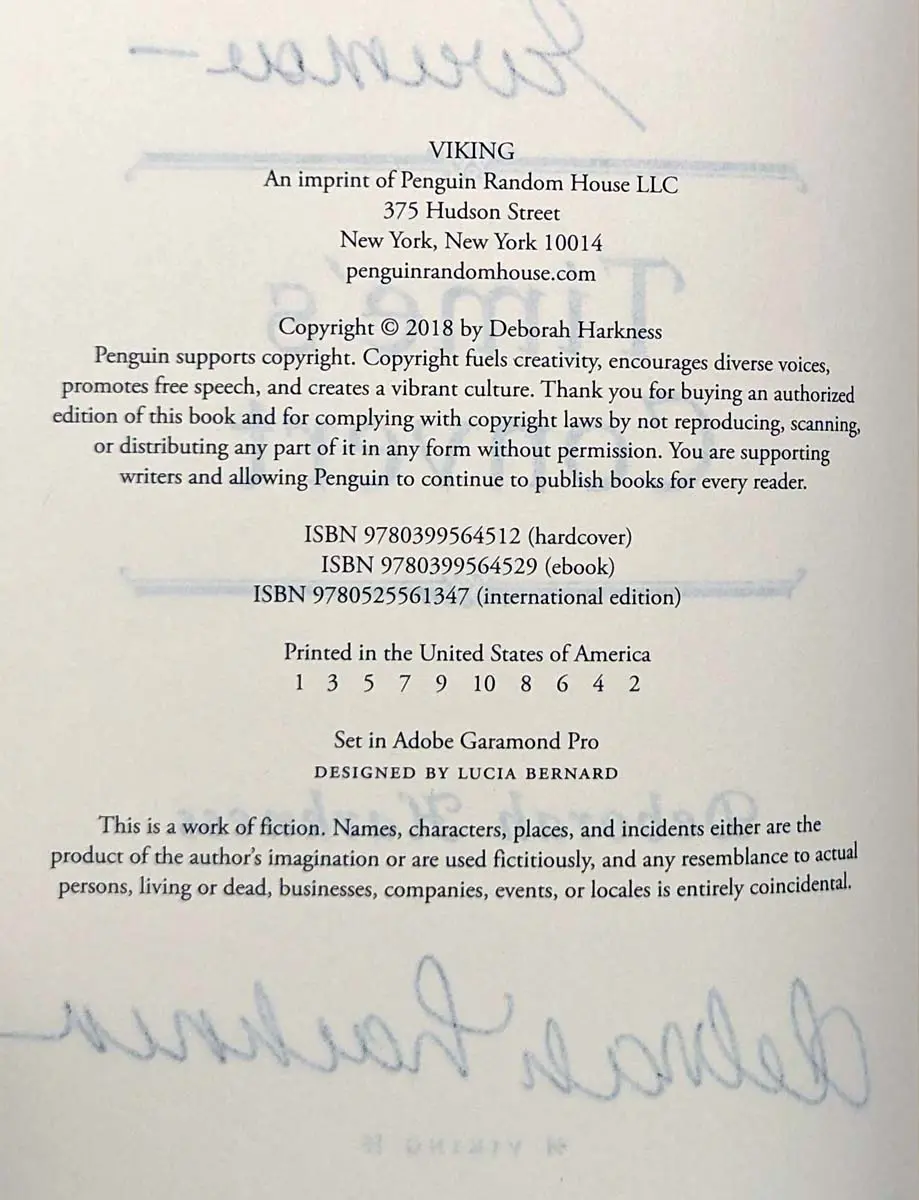 VIKING
An imprint of Penguin Random House LLC
375 Hudson Street
New York, New York 10014
penguinrandomhouse.com
Time's
Copyright © 2018 by Deborah Harkness
Penguin supports copyright. Copyright fuels creativity, encourages diverse voices,
promotes free speech, and creates a vibrant culture. Thank you for buying an authorized
edition of this book and for complying with copyright laws by not reproducing, scanning,
or distributing any part of it in any form without permission. You are supporting
writers and allowing Penguin to continue to publish books for every reader.
ISBN 9780399564512 (hardcover)
ISBN 9780399564529 (ebook)
ISBN 9780525561347 (international edition)
Printed in the United States of America
1 3 5 7 9 10 8 6 4 2
Set in Adobe Garamond Pro
DESIGNED BY LUCIA BERNARD
Deborah Harkness
This is a work of fiction. Names, characters, places, and incidents either are the
product of the author's imagination or are used fictitiously, and any resemblance to actual
persons, living or dead, businesses, companies, events, or locales is entirely coincidental.
Deborah Harkness
VIKING